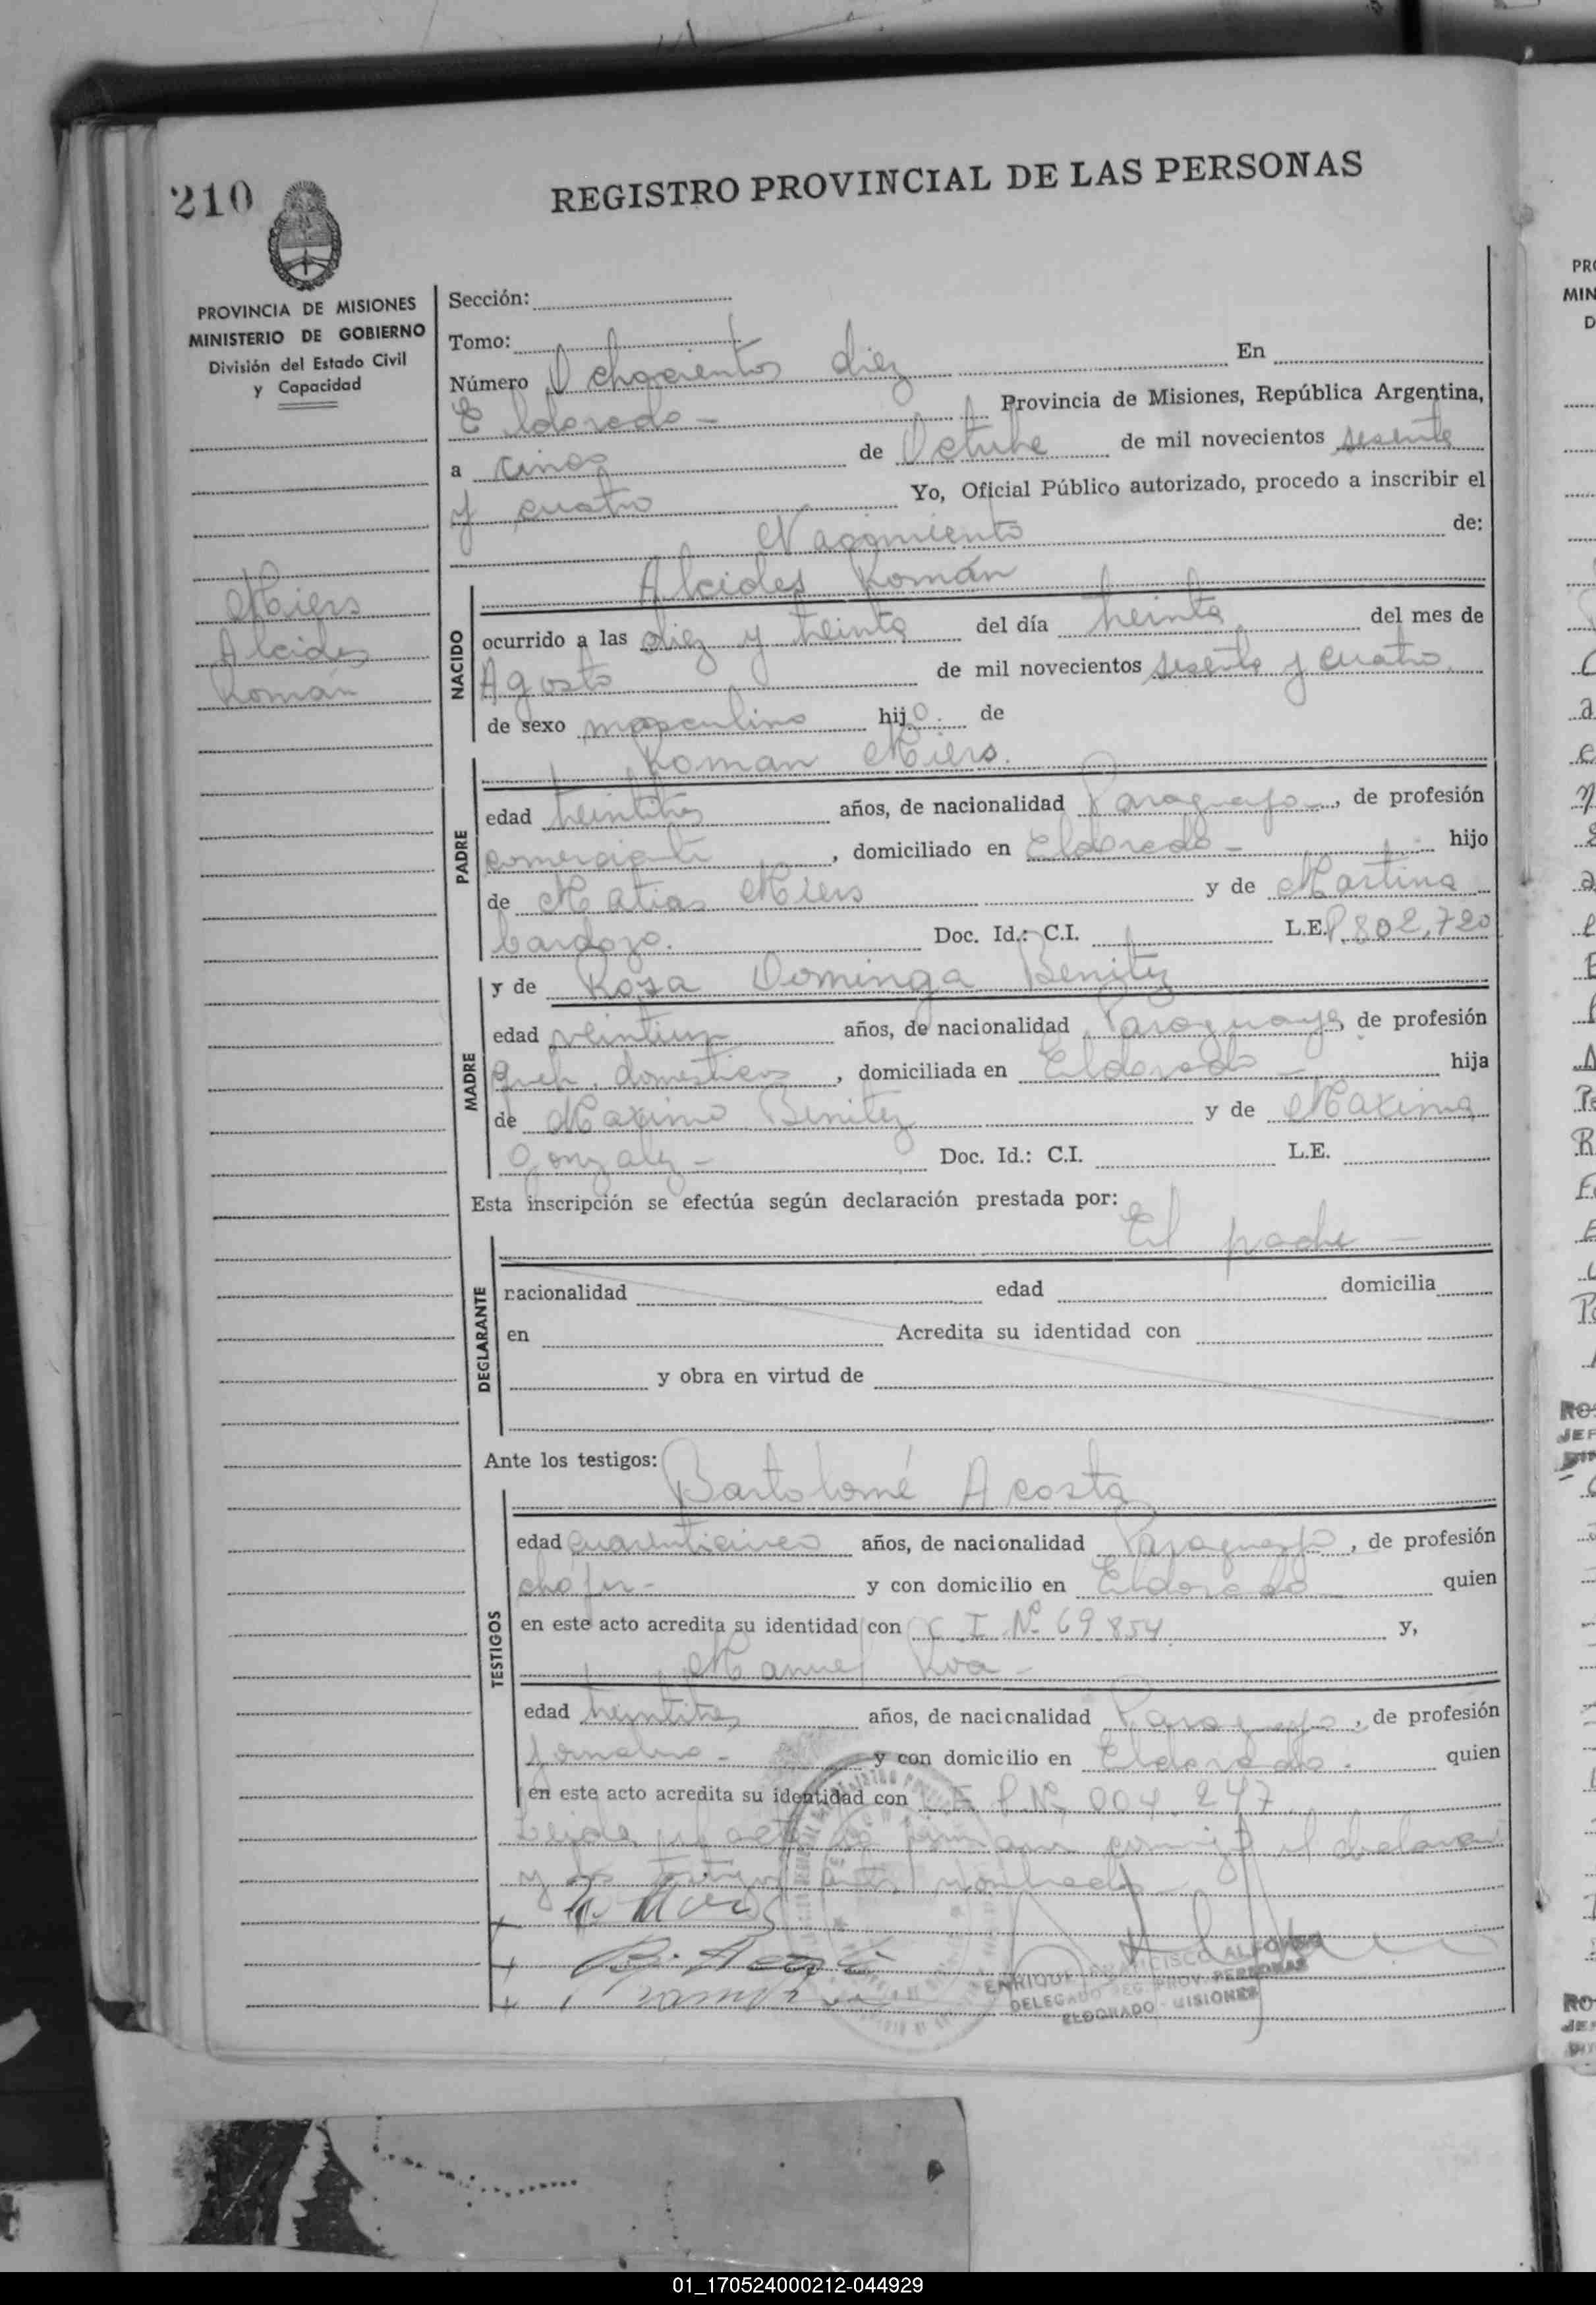 210
REGISTRO PROVINCIAL DE LAS PERSONAS
PROVINCIA DE MISIONES
MINISTERIO DE GOBIERNO
División del Estado Civil
y Capacidad
Miers
Alcides
Román
Sección:
Tomo:
Número Ochocientos diez En
Eldorado - Provincia de Misiones, República Argentina,
a cinco de Octubre de mil novecientos sesenta
y cuatro Yo, Oficial Público autorizado, procedo a inscribir el
Nacimiento de:
Alcides Román
NACIDO
ocurrido a las diez y treinta del día treinta del mes de
Agosto de mil novecientos sesenta y cuatro
de sexo masculino hijo. de
Roman Miers.
PADRE
edad treintitres años, de nacionalidad Paraguayo, de profesión
comerciante, domiciliado en Eldorado - hijo
de Matias Miers y de Martina
Cardozo. Doc. Id.: C.I. L.E. P.802.720
MADRE
y de Roza Dominga Benitez
edad veintiun años, de nacionalidad Paraguaya, de profesión
queh. domesticos, domiciliada en Eldorado - hija
de Maximo Benitez y de Maxima
Gonzalez - Doc. Id.: C.I. L.E.
Esta inscripción se efectúa según declaración prestada por:
El padre -
DECLARANTE
nacionalidad edad domicilia
en Acredita su identidad con
y obra en virtud de
Ante los testigos:
Bartolomé Acosta
TESTIGOS
edad cuarenticinco años, de nacionalidad Paraguayo, de profesión
chofer - y con domicilio en Eldorado quien
en este acto acredita su identidad con C I Nº 69.854 y,
Manuel -
edad treintitres años, de nacionalidad Paraguayo, de profesión
jornalero - y con domicilio en Eldorado. quien
en este acto acredita su identidad con P.Nº 004.247
Leida el acta la firman conmigo el declarante
y los testigos antes nombrados -
ENRIQUE FRANCISCO ALFONSO
DELEGADO REG. PROV. PERSONAS
ELDORADO - MISIONES
01_170524000212-044929